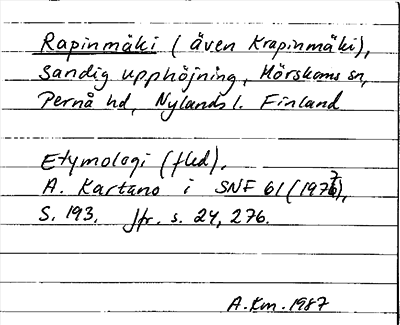 Rapinmäki (även Krapinmäki),
Sandig upphöjning, Mörskoms sn,
Pernå hd, Nylands l. Finland
Etymologi (fled).
A. Kartano i SNF 61 (1977),
S. 193. Jfr. s. 24, 276.
A.Km. 1987